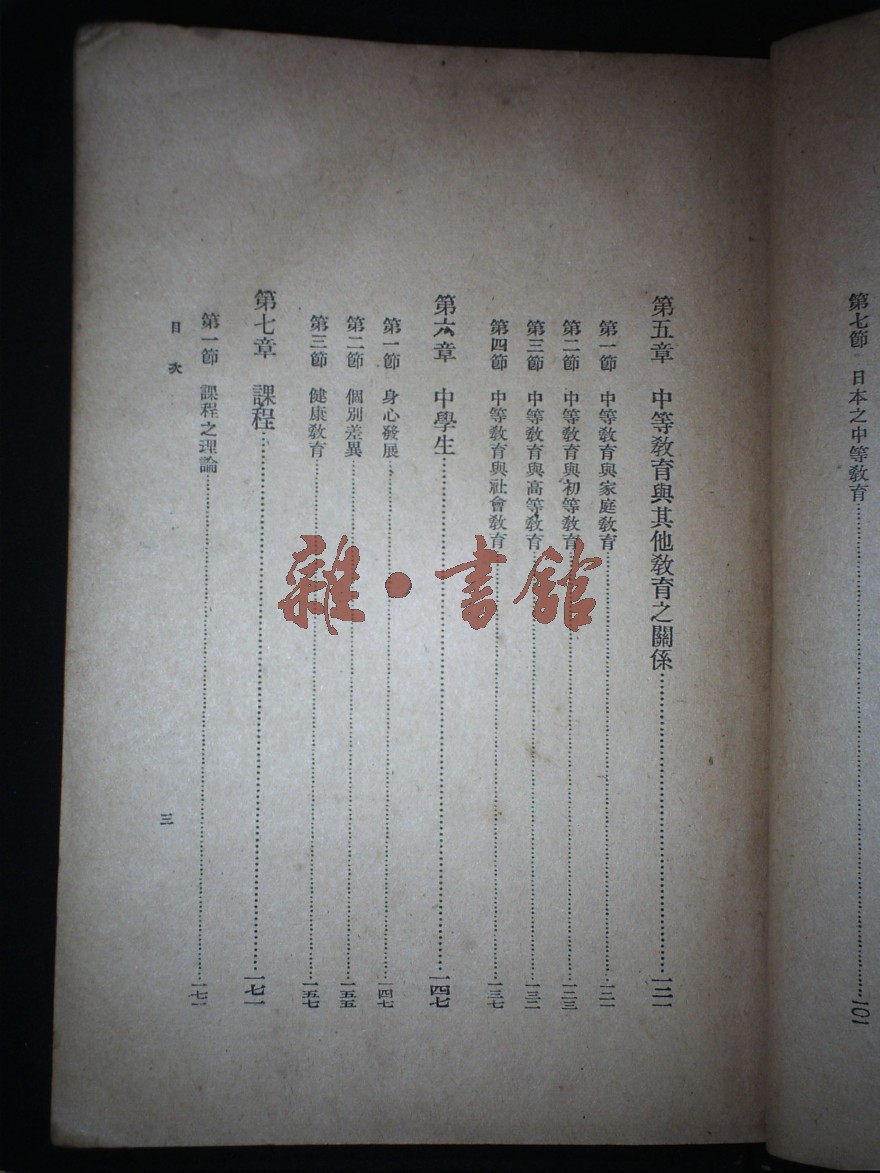 第七節　日本之中等教育……101
第五章　中等教育與其他教育之關係……一二一
第一節　中等教育與家庭教育……一二一
第二節　中等教育與初等教育……一二三
第三節　中等教育與高等教育……一三二
第四節　中等教育與社會教育……一三七
第六章　中學生……一四七
第一節　身心發展……一四七
第二節　個別差異……一五五
第三節　健康教育……一五七
第七章　課程……一七一
第一節　課程之理論……一七一
目次
三
雜·書館